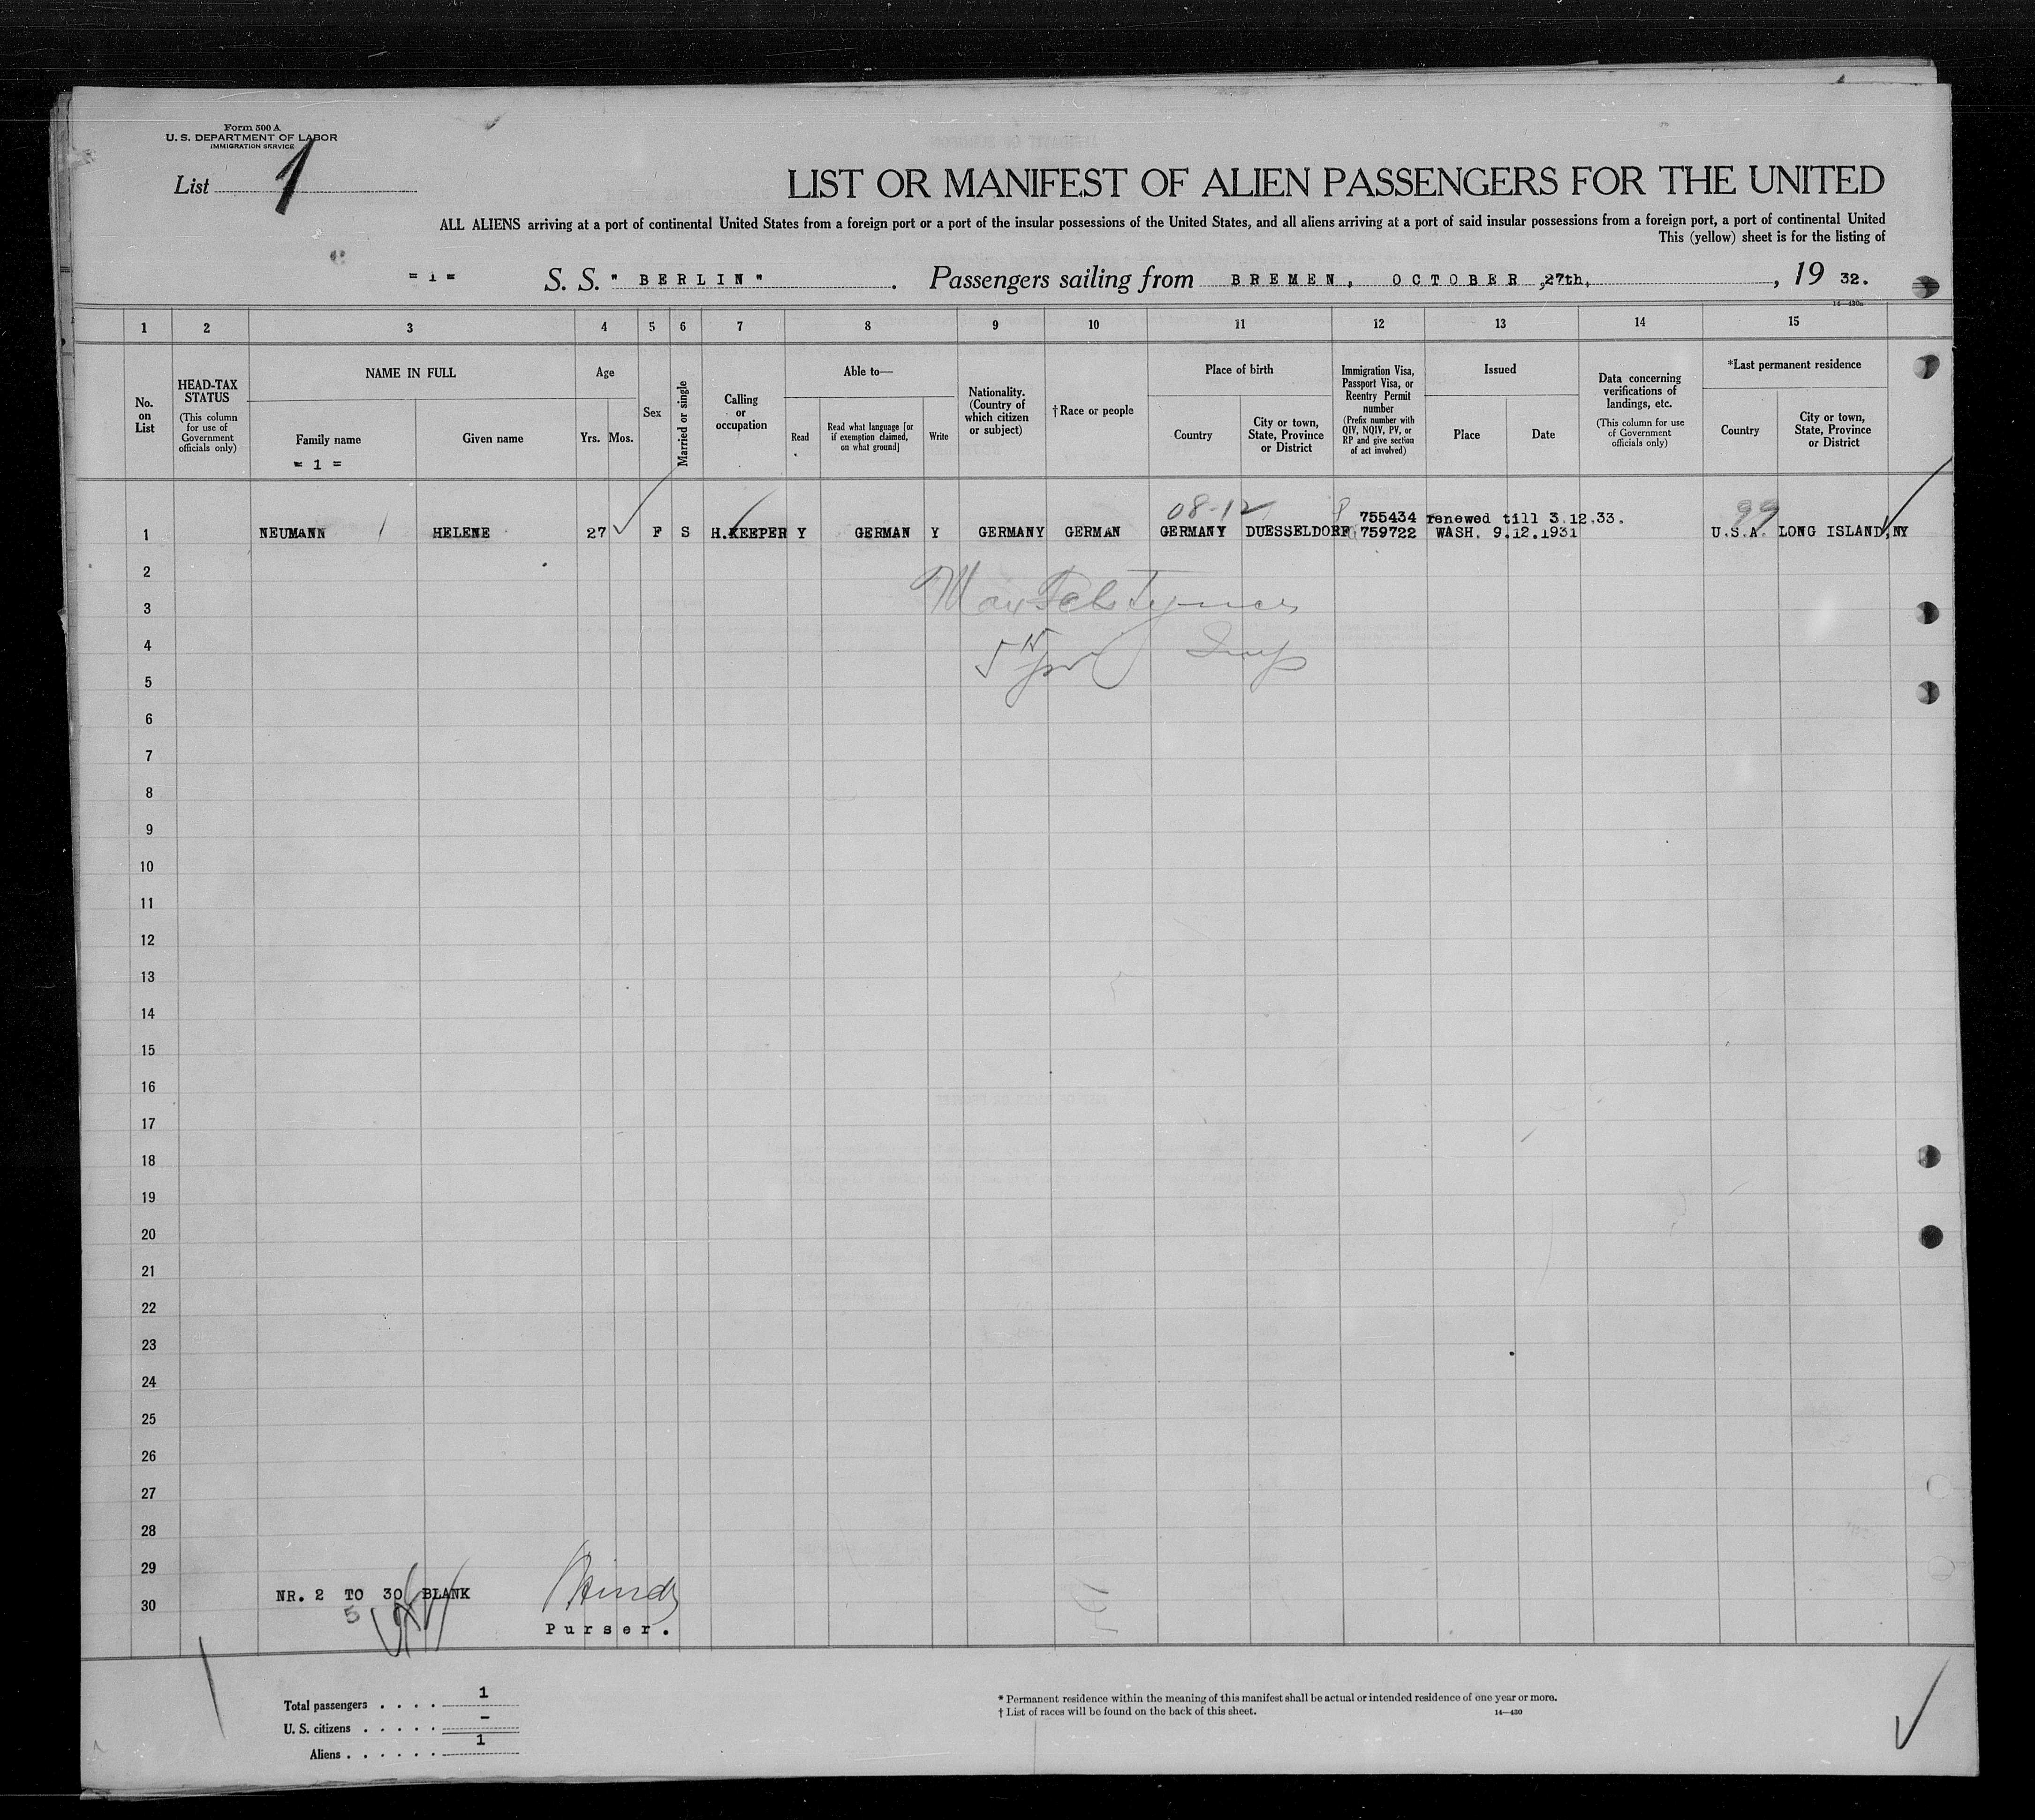 Form 500 A
U. S. DEPARTMENT OF LABOR
IMMIGRATION SERVICE
List 1
LIST OR MANIFEST OF ALIEN PASSENGERS FOR THE UNITED
ALL ALIENS arriving at a port of continental United States from a foreign port or a port of the insular possessions of the United States, and all aliens arriving at a port of said insular possessions from a foreign port, a port of continental United
This (yellow) sheet is for the listing of
= 1 = S. S. " BERLIN" . Passengers sailing from BREMEN, OCTOBER ,27th, , 19 32.
14—430a
1 2 3 4 5 6 7 8 9 10 11 12 13 14 15
No. on List
HEAD-TAX STATUS
(This column for use of Government officials only)
NAME IN FULL
Family name
Given name
= 1 =
Age
Yrs. Mos.
Sex
Married or single
Calling or occupation
Able to—
Read
Read what language [or if exemption claimed, on what ground]
Write
Nationality. (Country of which citizen or subject)
† Race or people
Place of birth
Country
City or town, State, Province or District
Immigration Visa, Passport Visa, or Reentry Permit number
(Prefix number with QIV, NQIV, PV, or RP and give section of act involved)
Issued
Place
Date
Data concerning verifications of landings, etc.
(This column for use of Government officials only)
*Last permanent residence
Country
City or town, State, Province or District
08-12 99
755434 renewed till 3.12.33.
1 NEUMANN HELENE 27 F S H.KEEPER Y GERMAN Y GERMANY GERMAN GERMANY DUESSELDORF 759722 WASH. 9.12.1931 U.S.A. LONG ISLAND, NY
2
3
4
5
6
7
8
9
10
11
12
13
14
15
16
17
18
19
20
21
22
23
24
25
26
27
28
29
30
NR. 2 TO 30 BLANK
5
Purser.
Total passengers . . . . 1
U. S. citizens . . . . . –
Aliens . . . . . . 1
* Permanent residence within the meaning of this manifest shall be actual or intended residence of one year or more.
† List of races will be found on the back of this sheet.
14—430